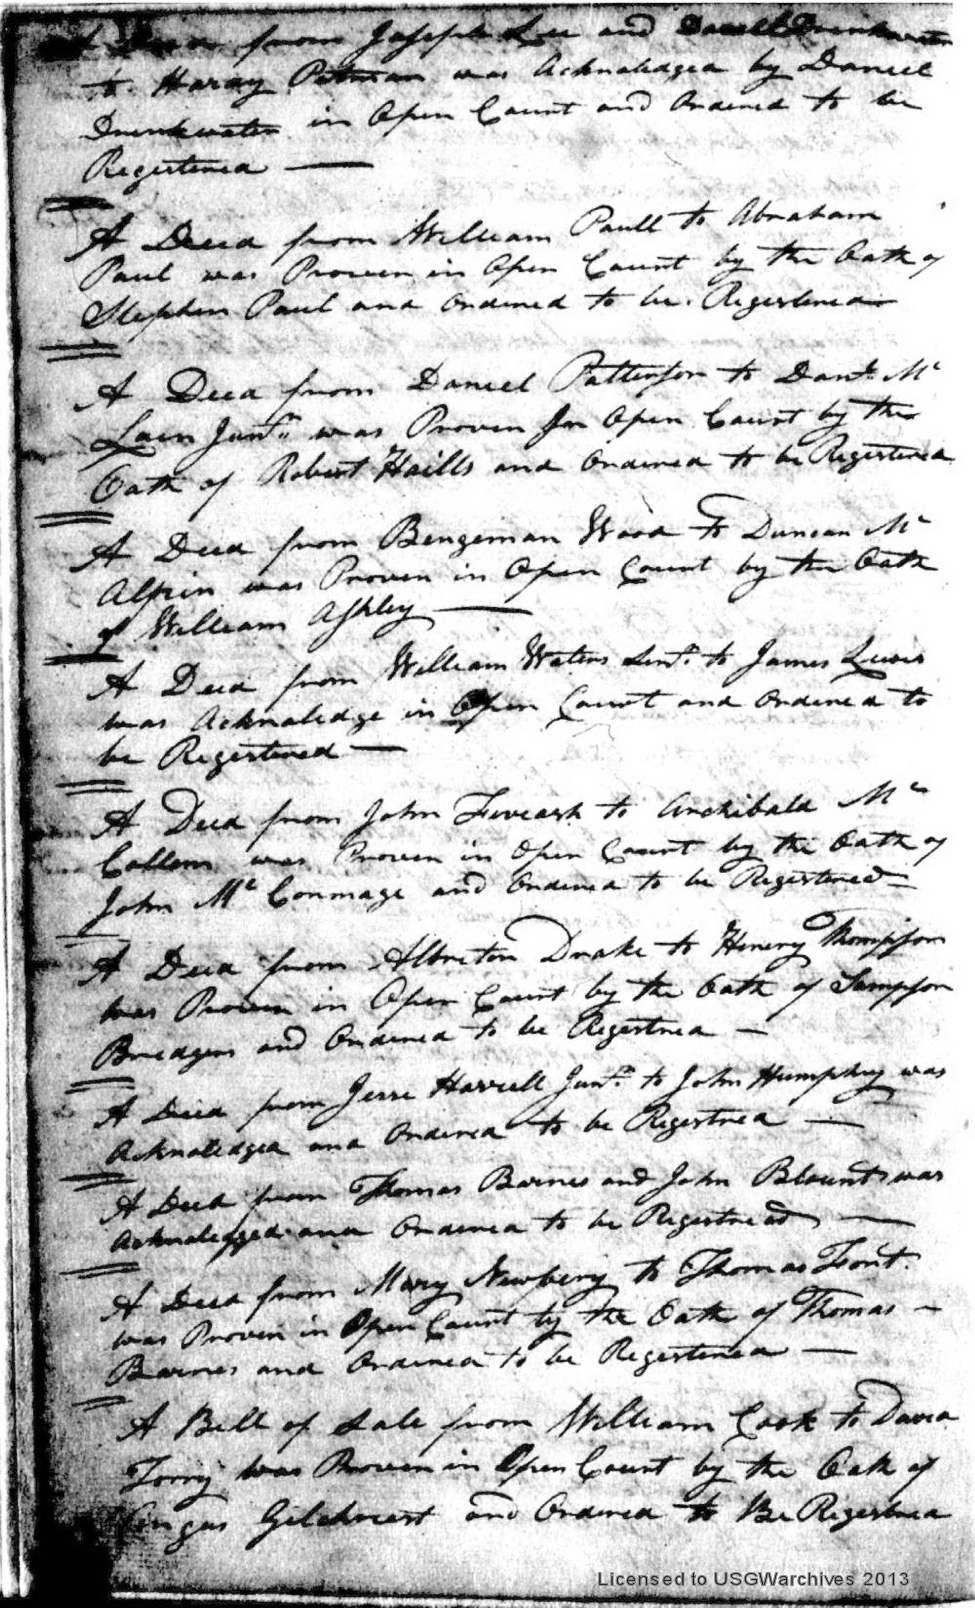 A Deed from Joseph Lee and Daniel Drinkwater
to Hardy Pitman was Acknaledged by Daniel
Drinkwater in Open Court and Ordered to be
Registered —
A Deed from William Paull to Abraham
Paul was Proven in Open Court by the Oath of
Stephen Paul and Ordered to be Registered
A Deed from Daniel Patterson to Danl. Mc
Lain Junr. was Proven In Open Court by the
Oath of Robert Haills and Ordered to be Registered
A Deed from Bengeman Wood to Duncan Mc
Alpin was Proven in Open Court by the Oath
of William Ashley —
A Deed from William Waters Senr. to James Lewis
was Acknaledge in Open Court and Ordered to
be Registered —
A Deed from John to Archibald Mc
Collom was Proven in Open Court by the Oath of
John Mc Conmage and Ordered to be Registered
A Deed from Albreton Drake to Henery Thompson
was Proven in Open Court by the Oath of Sampson
Bredgers and Ordered to be Registred —
A Deed from Jesse Harrell Junr. to John Humphry was
Acknaledged and Ordered to be Registred —
A Deed from Thomas Barnes and John Blount was
Acknaledged and Ordered to be Registread —
A Deed from Mary Newbery to Thomas
was Proven in Open Court by the Oath of Thomas —
Barnes and Ordered to be Registered —
A Bill of Sale from William Cook to David
Torry was Proven in Open Court by the Oath of
Angus Gilchreast and Ordered to Be Registred
Licensed to USGWarchives 2013